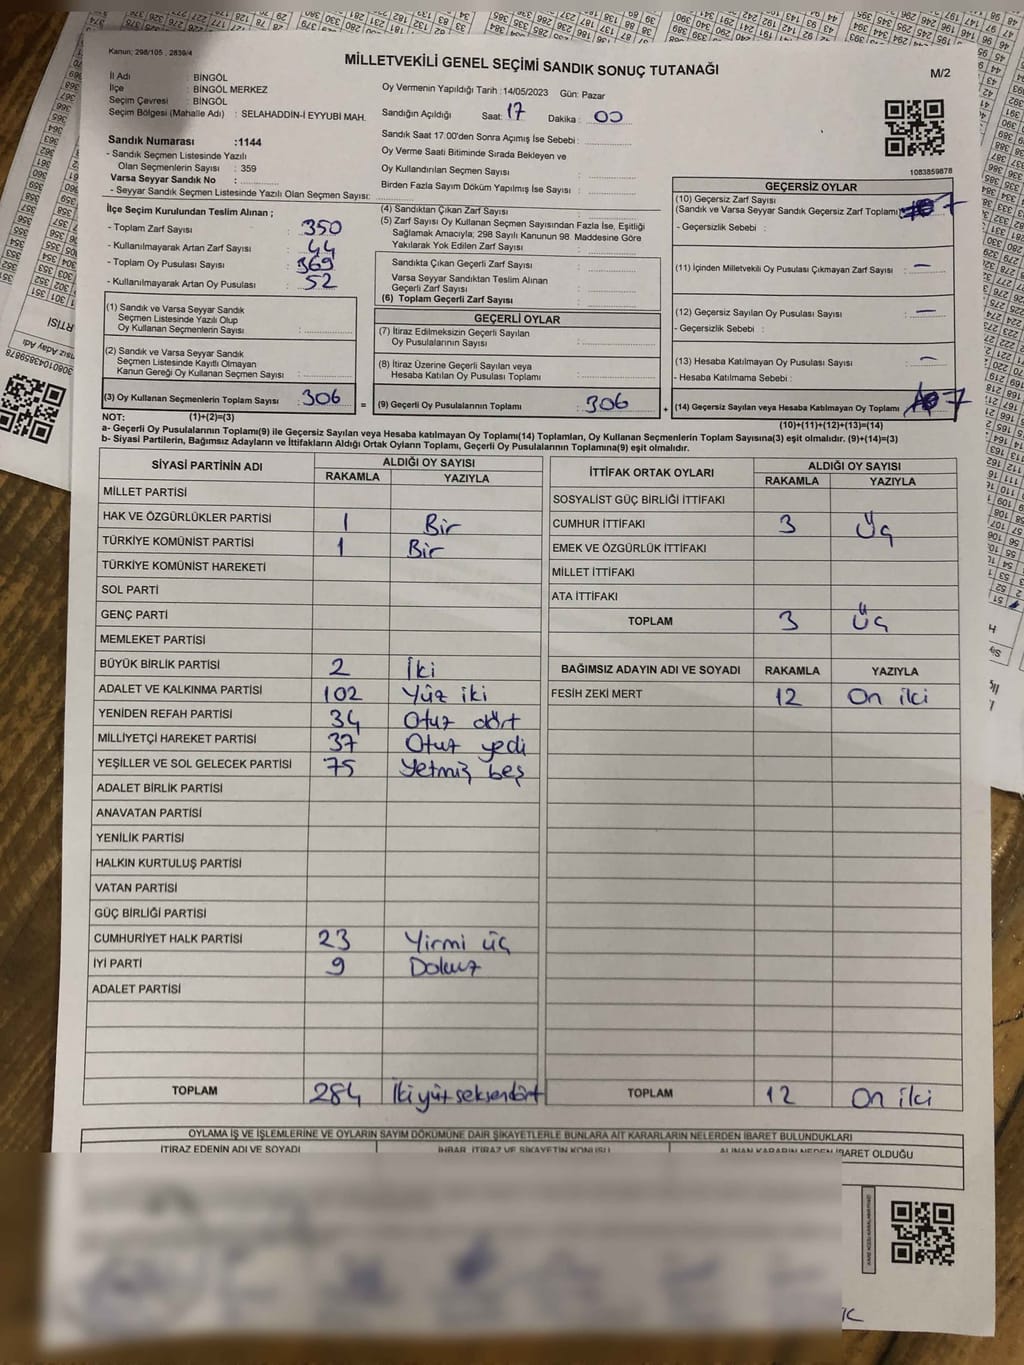 Kanun; 298/105 , 2839/4
MİLLETVEKİLİ GENEL SEÇİMİ SANDIK SONUÇ TUTANAĞI
M/2
İl Adı : BİNGÖL
İlçe : BİNGÖL MERKEZ
Seçim Çevresi : BİNGÖL
Seçim Bölgesi (Mahalle Adı) : SELAHADDİN-İ EYYUBİ MAH.
Oy Vermenin Yapıldığı Tarih :14/05/2023 Gün: Pazar
Sandığın Açıldığı Saat: 17 Dakika : 00
Sandık Saat 17:00'den Sonra Açımış İse Sebebi :
Oy Verme Saati Bitiminde Sırada Bekleyen ve
Oy Kullandırılan Seçmen Sayısı :
Birden Fazla Sayım Döküm Yapılmış İse Sayısı :
Sandık Numarası :1144
- Sandık Seçmen Listesinde Yazılı
Olan Seçmenlerin Sayısı : 359
Varsa Seyyar Sandık No :
- Seyyar Sandık Seçmen Listesinde Yazılı Olan Seçmen Sayısı:
1083859878
İlçe Seçim Kurulundan Teslim Alınan ;
- Toplam Zarf Sayısı : 350
- Kullanılmayarak Artan Zarf Sayısı : 44
- Toplam Oy Pusulası Sayısı : 369
- Kullanılmayarak Artan Oy Pusulası : 52
(1) Sandık ve Varsa Seyyar Sandık
Seçmen Listesinde Yazılı Olup
Oy Kullanan Seçmenlerin Sayısı :
(2) Sandık ve Varsa Seyyar Sandık
Seçmen Listesinde Kayıtlı Olmayan
Kanun Gereği Oy Kullanan Seçmen Sayısı :
(3) Oy Kullanan Seçmenlerin Toplam Sayısı : 306
(4) Sandıktan Çıkan Zarf Sayısı :
(5) Zarf Sayısı Oy Kullanan Seçmen Sayısından Fazla İse, Eşitliği
Sağlamak Amacıyla; 298 Sayılı Kanunun 98. Maddesine Göre
Yakılarak Yok Edilen Zarf Sayısı :
Sandıkta Çıkan Geçerli Zarf Sayısı :
Varsa Seyyar Sandıktan Teslim Alınan
Geçerli Zarf Sayısı :
(6) Toplam Geçerli Zarf Sayısı :
GEÇERLİ OYLAR
(7) İtiraz Edilmeksizin Geçerli Sayılan
Oy Pusulalarının Sayısı :
(8) İtiraz Üzerine Geçerli Sayılan veya
Hesaba Katılan Oy Pusulası Toplamı :
= (9) Geçerli Oy Pusulalarının Toplamı : 306
GEÇERSİZ OYLAR
(10) Geçersiz Zarf Sayısı
(Sandık ve Varsa Seyyar Sandık Geçersiz Zarf Toplamı) : 7
- Geçersizlik Sebebi :
(11) İçinden Milletvekili Oy Pusulası Çıkmayan Zarf Sayısı : –
(12) Geçersiz Sayılan Oy Pusulası Sayısı : –
- Geçersizlik Sebebi :
(13) Hesaba Katılmayan Oy Pusulası Sayısı : –
- Hesaba Katılmama Sebebi :
+ (14) Geçersiz Sayılan veya Hesaba Katılmayan Oy Toplamı : 7
NOT: (1)+(2)=(3)
(10)+(11)+(12)+(13)=(14)
a- Geçerli Oy Pusulalarının Toplamı(9) ile Geçersiz Sayılan veya Hesaba katılmayan Oy Toplamı(14) Toplamları, Oy Kullanan Seçmenlerin Toplam Sayısına(3) eşit olmalıdır. (9)+(14)=(3)
b- Siyasi Partilerin, Bağımsız Adayların ve İttifakların Aldığı Ortak Oyların Toplamı, Geçerli Oy Pusulalarının Toplamına(9) eşit olmalıdır.
SİYASİ PARTİNİN ADI ALDIĞI OY SAYISI
RAKAMLA YAZIYLA
MİLLET PARTİSİ
HAK VE ÖZGÜRLÜKLER PARTİSİ 1 Bir
TÜRKİYE KOMÜNİST PARTİSİ 1 Bir
TÜRKİYE KOMÜNİST HAREKETİ
SOL PARTİ
GENÇ PARTİ
MEMLEKET PARTİSİ
BÜYÜK BİRLİK PARTİSİ 2 İki
ADALET VE KALKINMA PARTİSİ 102 Yüz iki
YENİDEN REFAH PARTİSİ 34 Otuz dört
MİLLİYETÇİ HAREKET PARTİSİ 37 Otuz yedi
YEŞİLLER VE SOL GELECEK PARTİSİ 75 Yetmiş beş
ADALET BİRLİK PARTİSİ
ANAVATAN PARTİSİ
YENİLİK PARTİSİ
HALKIN KURTULUŞ PARTİSİ
VATAN PARTİSİ
GÜÇ BİRLİĞİ PARTİSİ
CUMHURİYET HALK PARTİSİ 23 Yirmi üç
İYİ PARTİ 9 Dokuz
ADALET PARTİSİ
TOPLAM 284 İkiyüzseksendört
İTTİFAK ORTAK OYLARI ALDIĞI OY SAYISI
RAKAMLA YAZIYLA
SOSYALİST GÜÇ BİRLİĞİ İTTİFAKI
CUMHUR İTTİFAKI 3 Üç
EMEK VE ÖZGÜRLÜK İTTİFAKI
MİLLET İTTİFAKI
ATA İTTİFAKI
TOPLAM 3 Üç
BAĞIMSIZ ADAYIN ADI VE SOYADI RAKAMLA YAZIYLA
FESİH ZEKİ MERT 12 On iki
TOPLAM 12 On iki
OYLAMA İŞ VE İŞLEMLERİNE VE OYLARIN SAYIM DÖKÜMÜNE DAİR ŞİKAYETLERLE BUNLARA AİT KARARLARIN NELERDEN İBARET BULUNDUKLARI
İTİRAZ EDENİN ADI VE SOYADI İHBAR, İTİRAZ VE ŞİKAYETİN KONUSU ALINAN KARARIN NEDEN İBARET OLDUĞU